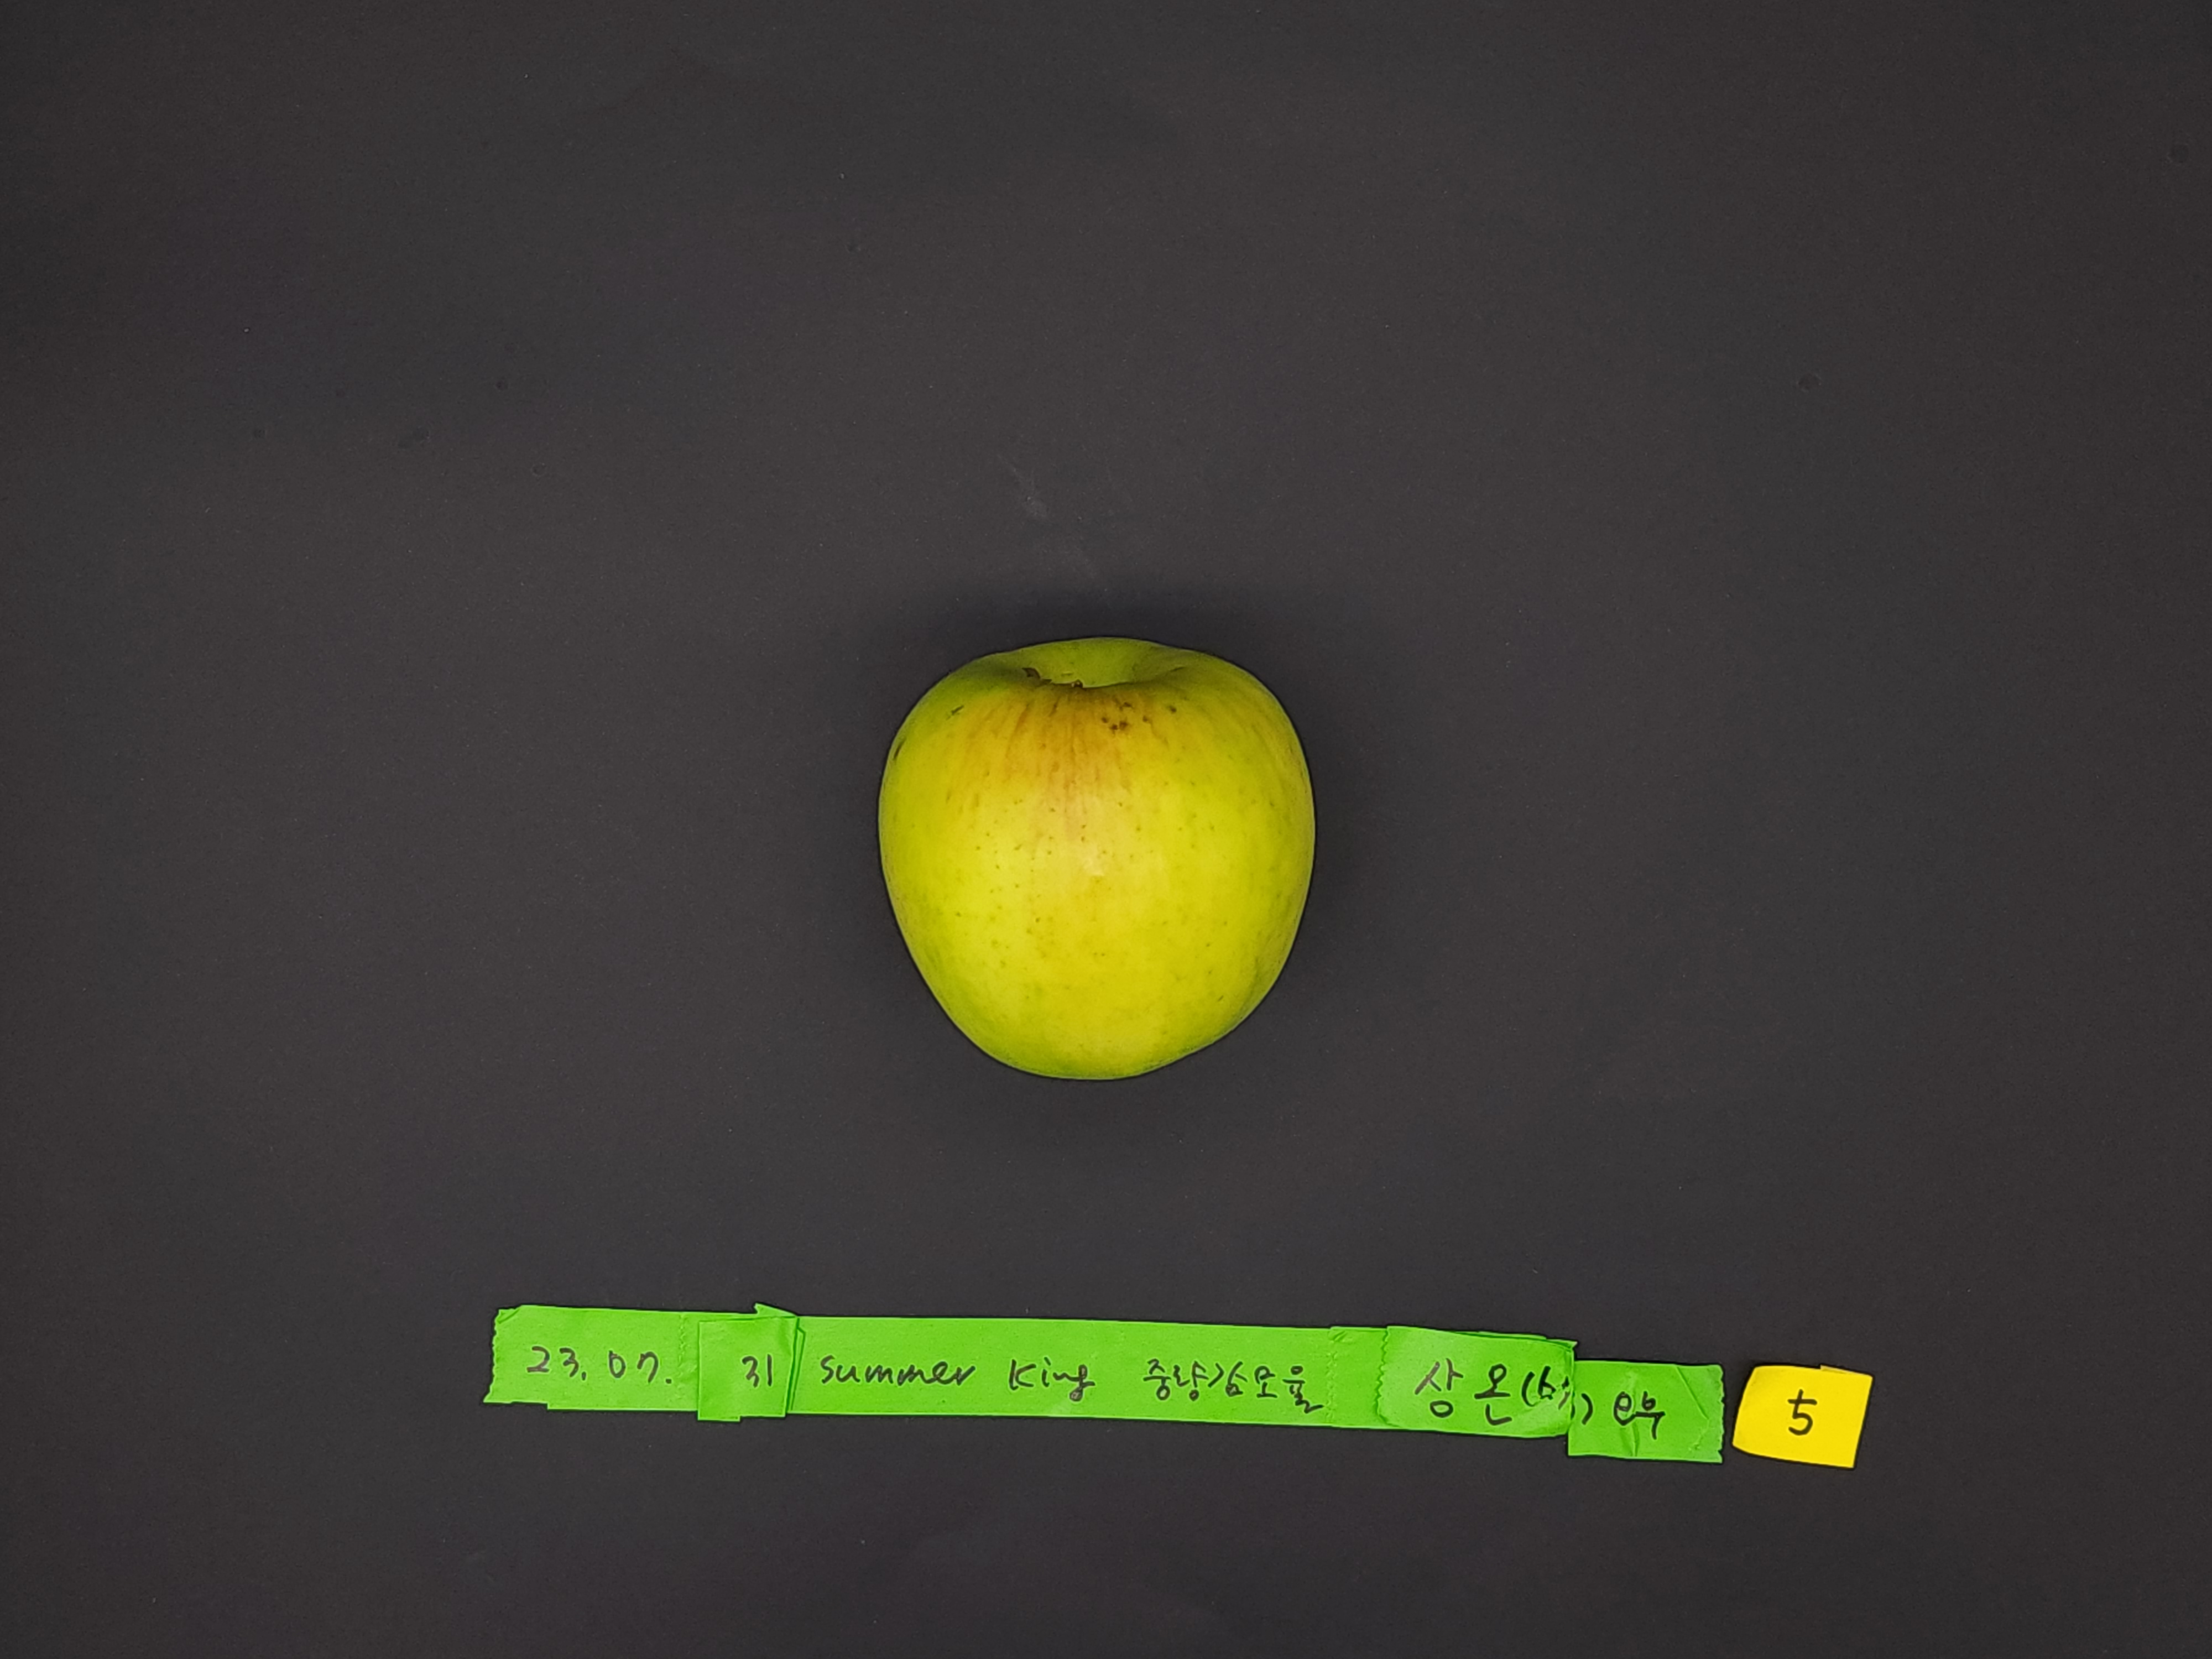 23.07. 31 Summer King 중량감모율 상온 5